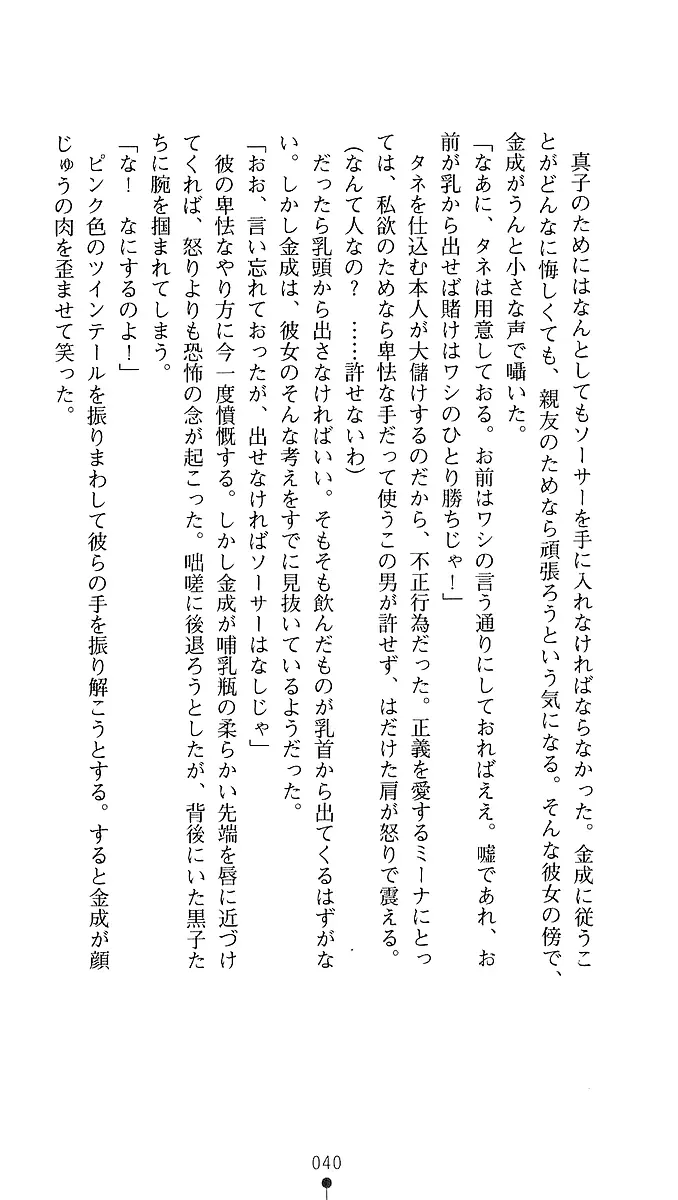 真子のためにはなんとしてもソーサーを手に入れなければならなかった。金成に従うこ
とがどんなに悔しくても、親友のためなら頑張ろうという気になる。そんな彼女の傍で、
金成がうんと小さな声で囁いた。
「なあに、タネは用意しておる。お前はワシの言う通りにしておればええ。嘘であれ、お
前が乳から出せば賭けはワシのひとり勝ちじゃ！」
タネを仕込む本人が大儲けするのだから、不正行為だった。正義を愛するミーナにとっ
ては、私欲のためなら卑怯な手だって使うこの男が許せず、はだけた肩が怒りで震える。
（なんて人なの？　……許せないわ）
だったら乳頭から出さなければいい。そもそも飲んだものが乳首から出てくるはずがな
い。しかし金成は、彼女のそんな考えをすでに見抜いているようだった。
「おお、言い忘れておったが、出せなければソーサーはなしじゃ」
彼の卑怯なやり方に今一度憤慨する。しかし金成が哺乳瓶の柔らかい先端を唇に近づけ
てくれば、怒りよりも恐怖の念が起こった。咄嗟に後退ろうとしたが、背後にいた黒子た
ちに腕を掴まれてしまう。
「な！　なにするのよ！」
ピンク色のツインテールを振りまわして彼らの手を振り解こうとする。すると金成が顔
じゅうの肉を歪ませて笑った。
040